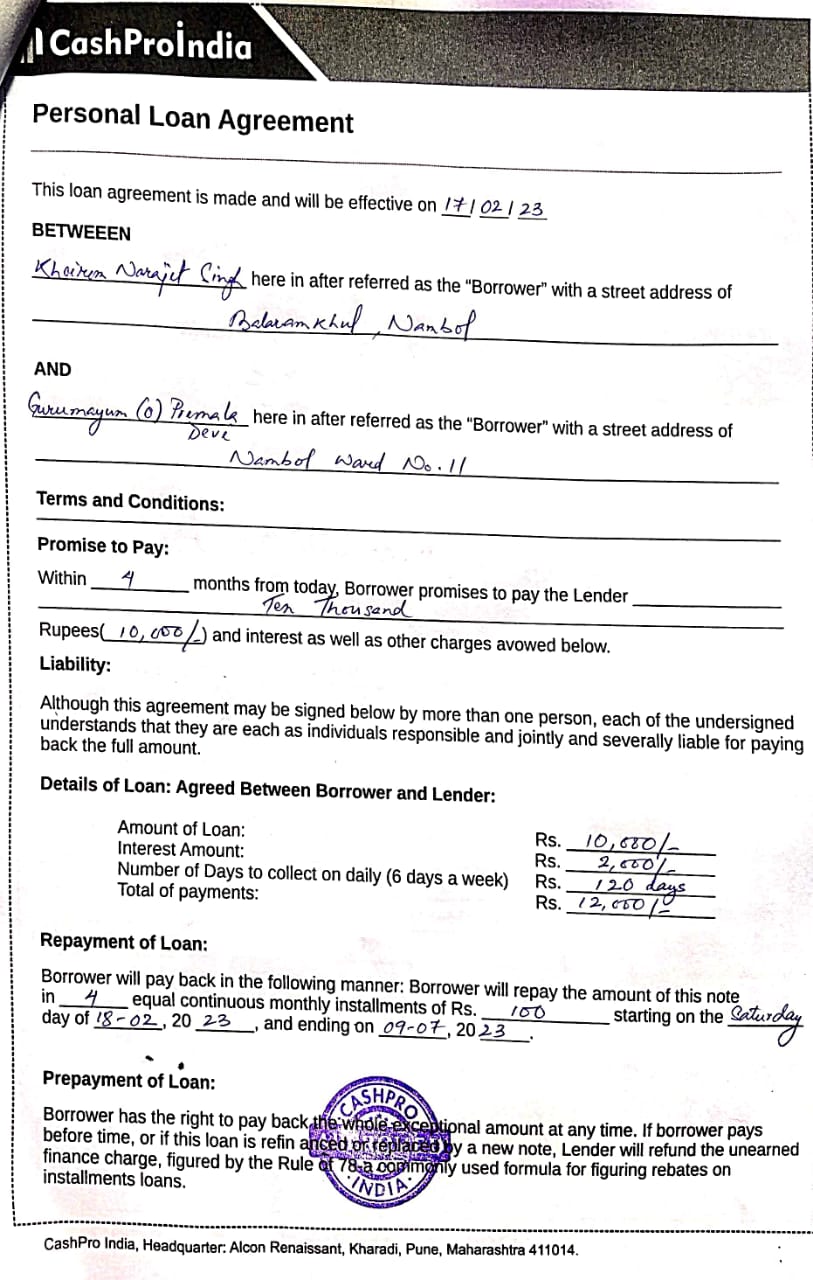 CashProIndia
Personal Loan Agreement
This loan agreement is made and will be effective on 17/02/23
BETWEEEN
Khoirom Narajit Singh here in after referred as the "Borrower" with a street address of
Balaramkhul, Nambol
AND
Gurumayum (O) Premala here in after referred as the "Borrower" with a street address of
Devi
Nambol Ward No. 11
Terms and Conditions:
Promise to Pay:
Within 4 months from today, Borrower promises to pay the Lender
Ten Thousand
Rupees( 10,000/-) and interest as well as other charges avowed below.
Liability:
Although this agreement may be signed below by more than one person, each of the undersigned
understands that they are each as individuals responsible and jointly and severally liable for paying
back the full amount.
Details of Loan: Agreed Between Borrower and Lender:
Amount of Loan: Rs. 10,000/-
Interest Amount: Rs. 2,000/-
Number of Days to collect on daily (6 days a week) Rs. 120 days
Total of payments: Rs. 12,000/-
Repayment of Loan:
Borrower will pay back in the following manner: Borrower will repay the amount of this note
in 4 equal continuous monthly installments of Rs. 100 starting on the Saturday
day of 18-02, 20 23, and ending on 09-07, 20 23.
Prepayment of Loan:
Borrower has the right to pay back the whole exceptional amount at any time. If borrower pays
before time, or if this loan is refin anced or replaced by a new note, Lender will refund the unearned
finance charge, figured by the Rule of 78-a commonly used formula for figuring rebates on
installments loans.
CASHPRO
INDIA
CashPro India, Headquarter: Alcon Renaissant, Kharadi, Pune, Maharashtra 411014.